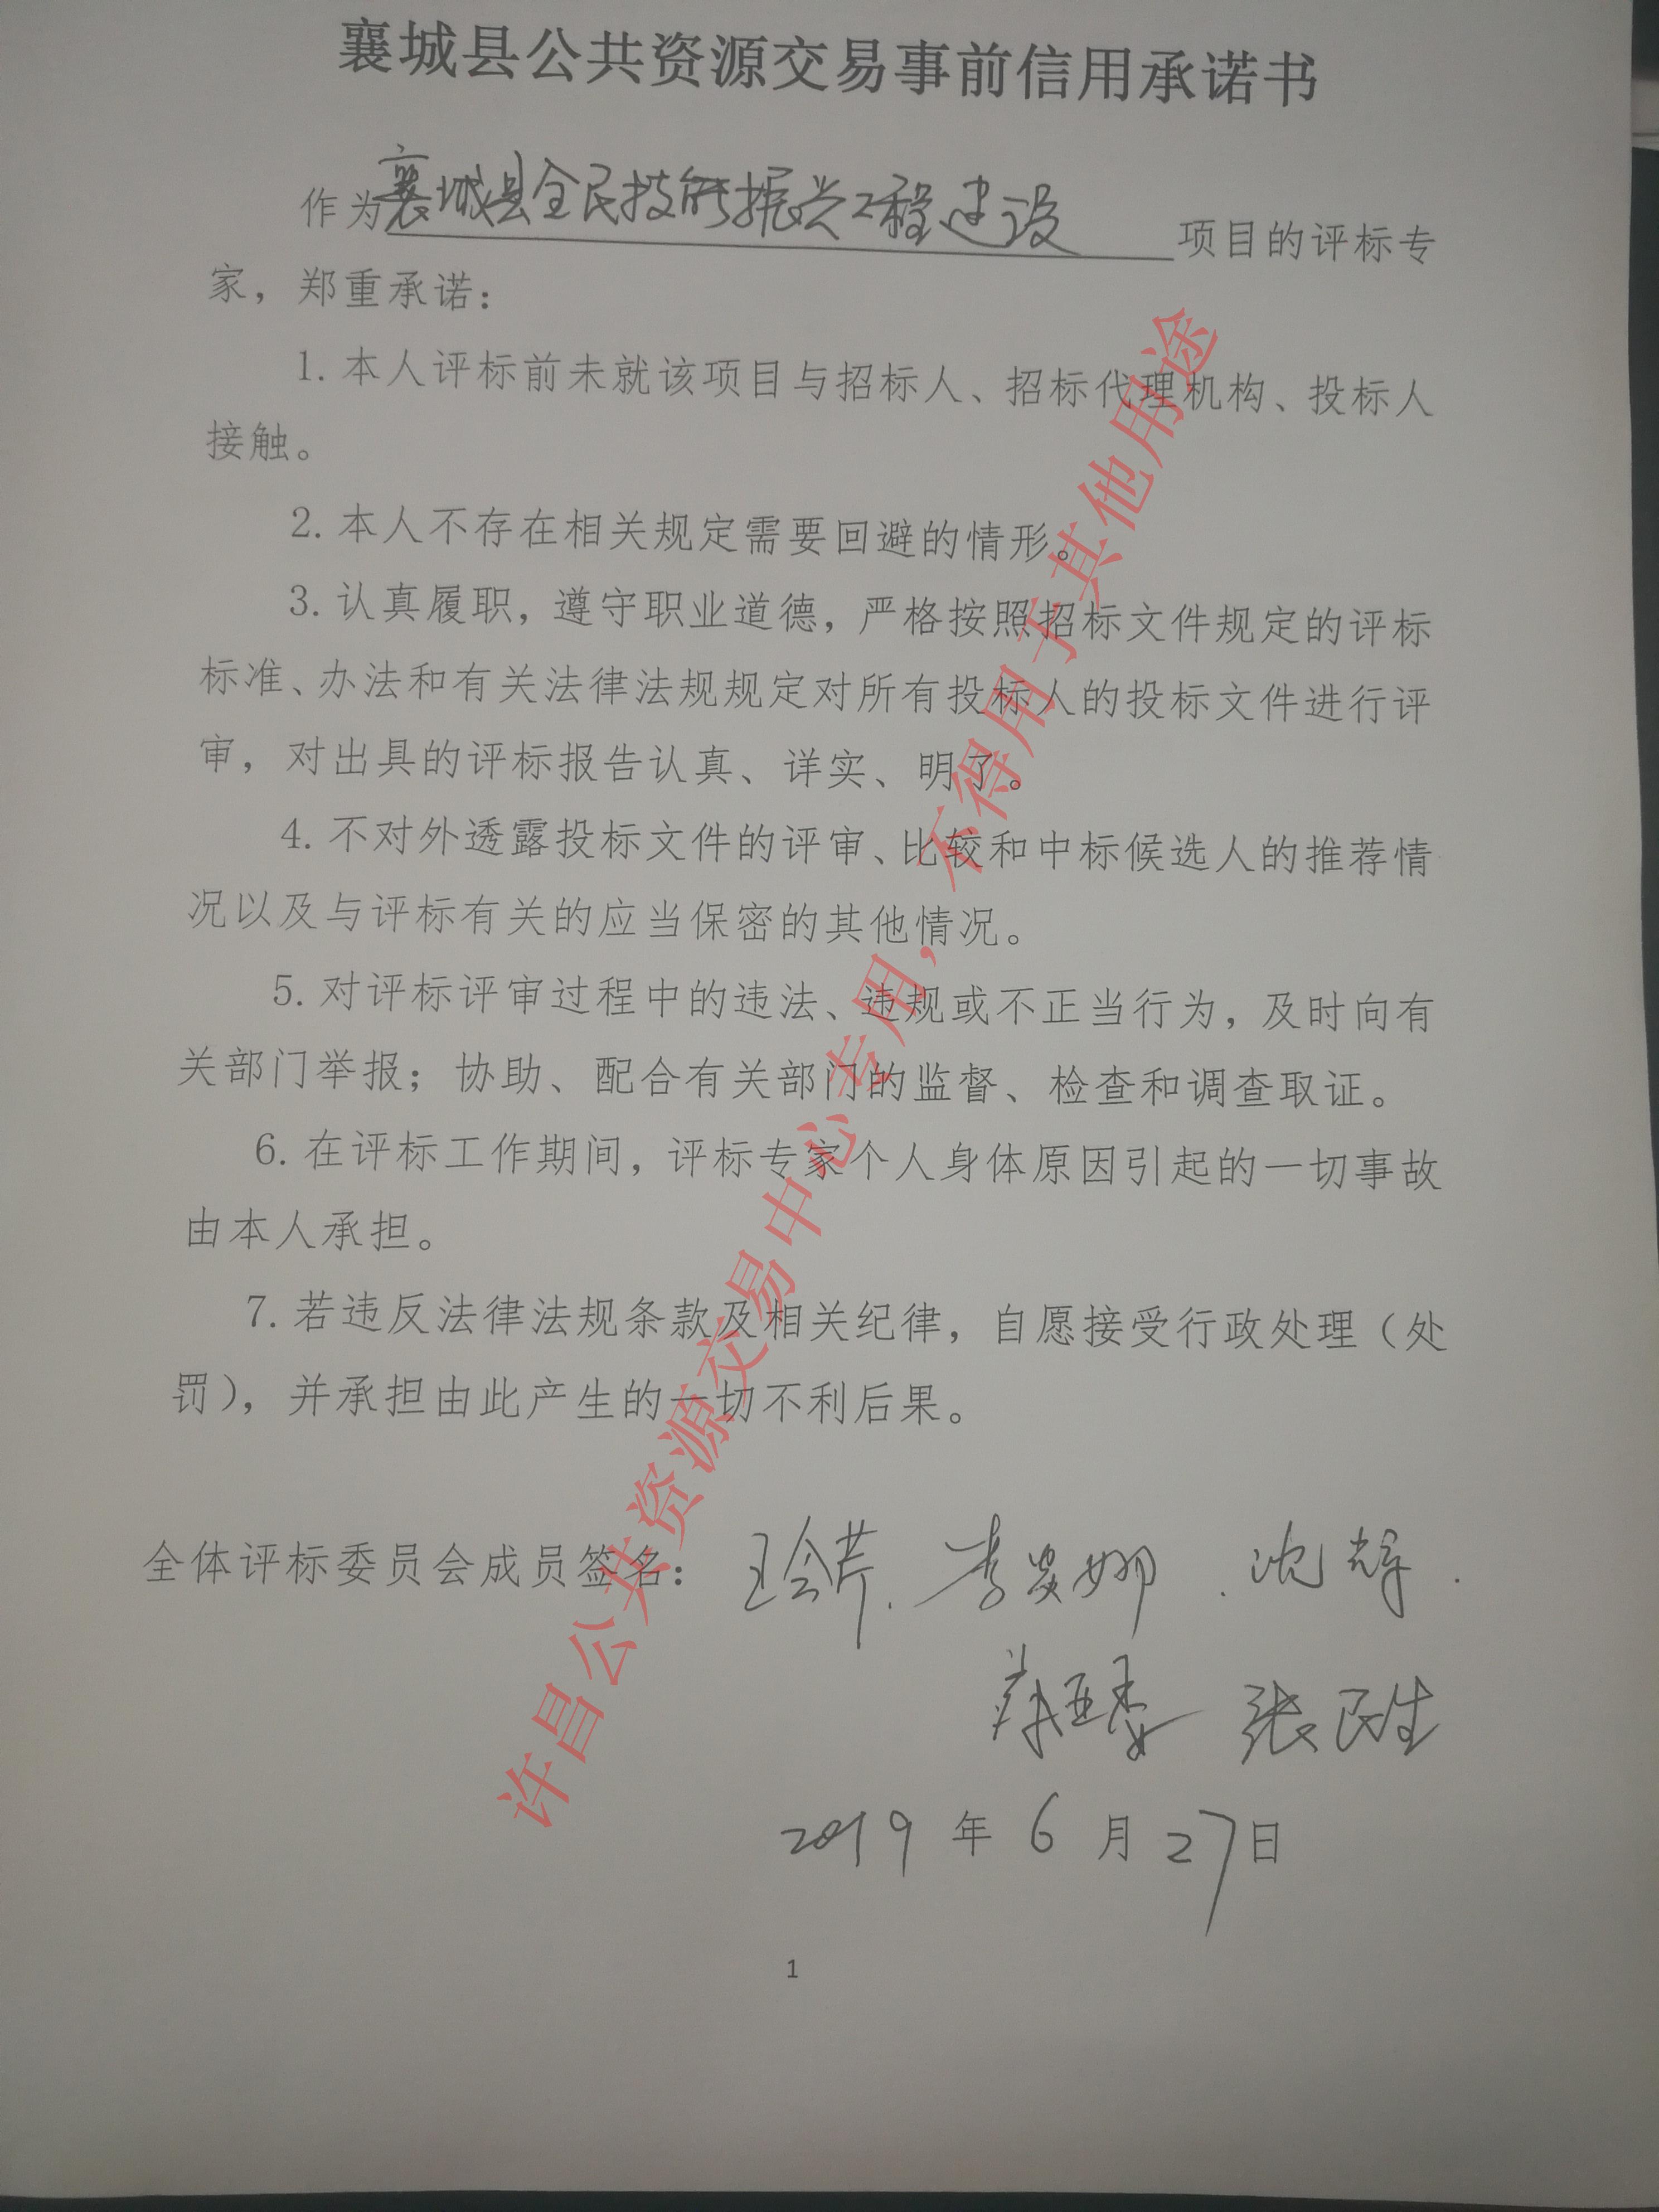 襄城县公共资源交易事前信用承诺书
作为襄城县全民技能振兴工程建设项目的评标专
家，郑重承诺：
1.本人评标前未就该项目与招标人、招标代理机构、投标人
接触。
2.本人不存在相关规定需要回避的情形。
3.认真履职，遵守职业道德，严格按照招标文件规定的评标
标准、办法和有关法律法规规定对所有投标人的投标文件进行评
审，对出具的评标报告认真、详实、明了。
4.不对外透露投标文件的评审、比较和中标候选人的推荐情
况以及与评标有关的应当保密的其他情况。
5.对评标评审过程中的违法、违规或不正当行为，及时向有
关部门举报；协助、配合有关部门的监督、检查和调查取证。
6.在评标工作期间，评标专家个人身体原因引起的一切事故
由本人承担。
7.若违反法律法规条款及相关纪律，自愿接受行政处理（处
罚），并承担由此产生的一切不利后果。
全体评标委员会成员签名：王会芹.李 娜.沈辉.
张民生
2019年6月27日
1
许昌公共资源交易中心专用，不得用于其他用途